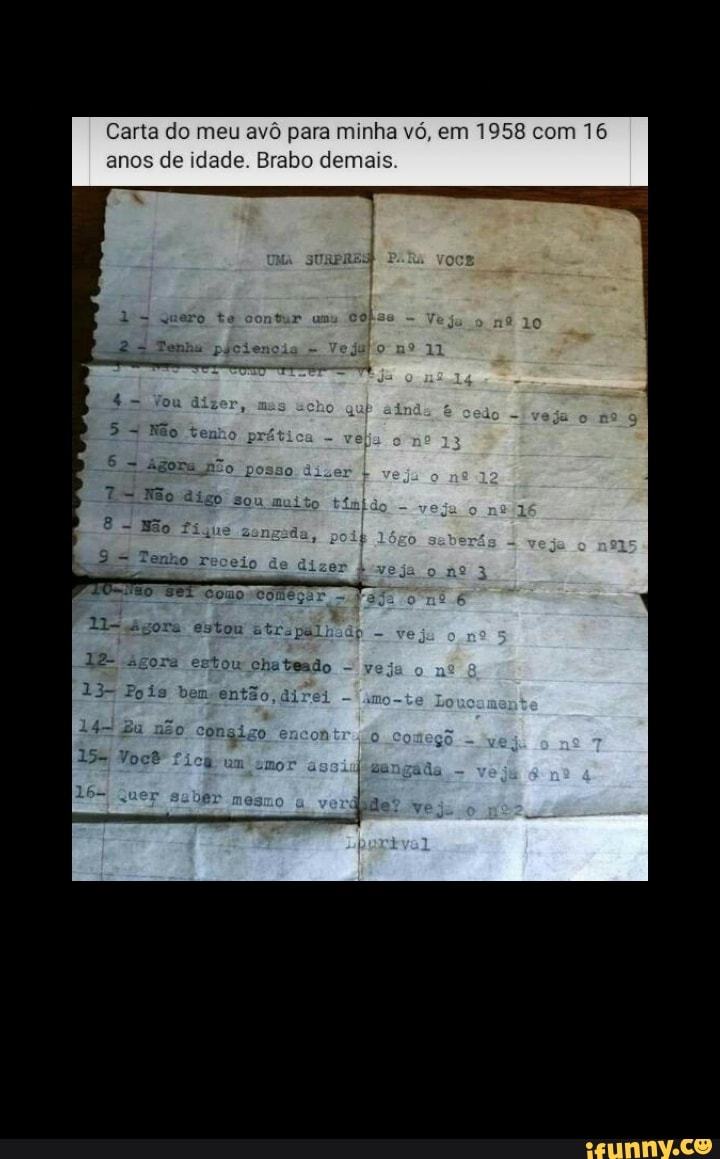 Carta do meu avô para minha vó, em 1958 com 16
anos de idade. Brabo demais.
UMA SURPRES PARA VOCE
1 - Quero te contar uma coisa - Veja o nº 10
2 - Tenha paciencia - Veja o nº 11
3 - Não sei como dizer - Veja o nº 14
4 - Vou dizer, mas acho que ainda é cedo - veja o nº 9
5 - Não tenho prática - veja o nº 13
6 - Agora não posso dizer - veja o nº 12
7 - Não digo sou muito tímido - veja o nº 16
8 - Não fique zangada, pois lógo saberás - veja o nº15
9 - Tenho receio de dizer - veja o nº 3
10-Não sei como começar - veja o nº 6
11- Agora estou atrapalhado - veja o nº 5
12- Agora estou chateado - veja o nº 8
13- Pois bem então,direi - Amo-te Loucamente
14- Eu não consigo encontra o começõ - veja o nº 7
15- Você fica um amor assim zangada - veja o nº 4
16- Quer saber mesmo a verdade? veja o nº2
Lourival
ifunny.co